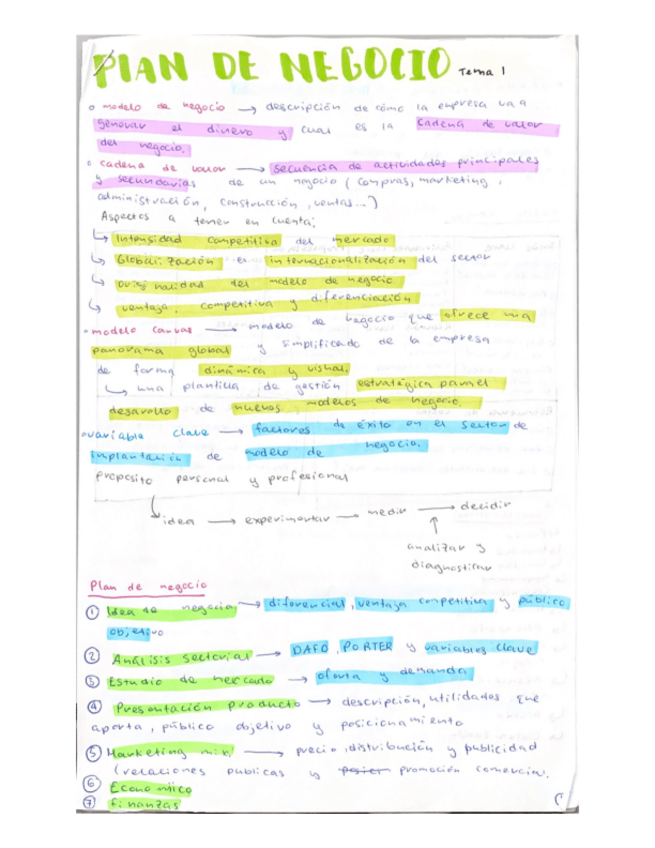 PLAN DE NEGOCIO Tema 1
o modelo de negocio → descripción de cómo la empresa va a
generar el dinero y cual es la cadena de valor
del negocio.
o cadena de valor → secuencia de actividades principales
y secundarias de un negocio (compras, marketing,
administración, construcción, ventas...)
Aspectos a tener en cuenta:
↳ Intensidad competitiva del mercado
↳ Globalización e internacionalización del sector
↳ Originalidad del modelo de negocio
↳ ventaja competitiva y diferenciación
o modelo canvas → modelo de negocio que ofrece una
panorama global y simplificado de la empresa
de forma dinámica y visual.
↳ una plantilla de gestión estratégica para el
desarollo de nuevos modelos de negocio.
o variable clave → factores de éxito en el sector de
implantación de modelo de negocio.
proposito personal y profesional
↳ idea → experimentar → medir → decidir
↑
analizar y
diagnosticar
Plan de negocio
① Idea de negocio → diferencial, ventaja competitiva y público
objetivo
② Análisis sectorial → DAFO, PORTER y variables clave
③ Estudio de mercado → oferta y demanda
④ Presentación producto → descripción, utilidades que
aporta, público objetivo y posicionamiento
⑤ Marketing mix → precio, distribución y publicidad
(relaciones publicas y promoción comercial.
⑥ Económico
⑦ finanzas